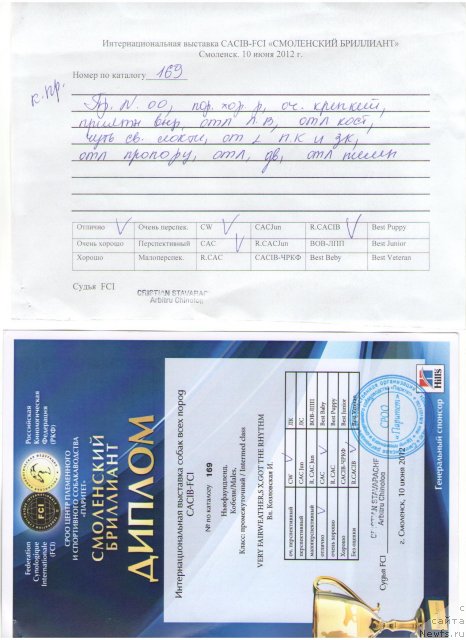 Интернациональная выставка CACIB-FCI «СМОЛЕНСКИЙ БРИЛЛИАНТ»
Смоленск. 10 июня 2012 г.
Номер по каталогу 169
к.пр.
N. 00, пор. хор. р, оч. крепкий,
отл кост,
чуть св. локти, от L П.К и ЗК,
отл пропорц, отл. дв, отл темп
Отлично Очень перспек. CW CACJun R.CACIB Best Puppy
Очень хорошо Перспективный CAC R.CACJun ВОВ-ЛПП Best Junior
Хорошо Малоперспек. R.CAC CACIB-ЧРКФ Best Beby Best Veteran
Судья FCI
CRISTIAN STAVARAC
Arbitru Chinolog
Российская
Кинологическая
Федерация
(РКФ)
Federation
Cynologique
Internationale
(FCI)
FCI
СРОО ЦЕНТР ПЛЕМЕННОГО
И СПОРТИВНОГО СОБАКОВОДСТВА
«ПАРИТЕТ»
СМОЛЕНСКИЙ
БРИЛЛИАНТ
ДИПЛОМ
Интернациональная выставка собак всех пород
CACIB-FCI
№ по каталогу 169
Ньюфаундленд,
Кобели/Males,
Класс: промежуточный / Intermed class
VERY FAIRWEATHER,S X.GOT THE RHYTHM
Вл. Козловская И.
оч. перспективный CW ЛК
перспективный CAC Jun ЛС
малоперспективный R.CAC Jun ВОВ-ЛПП
отлично CAC Best Baby
очень хорошо R.CAC Best Puppy
Хорошо CACIB-ЧРКФ Best Junior
Без оценки R.CACIB Best Veteran
Судья FCI
STAVARACHE
Arbitru Chinolog
г. Смоленск, 10 июня 2012 г.
СРОО
«Паритет»
Hill's
Генеральный спонсор
с
сайта
Newfs.ru